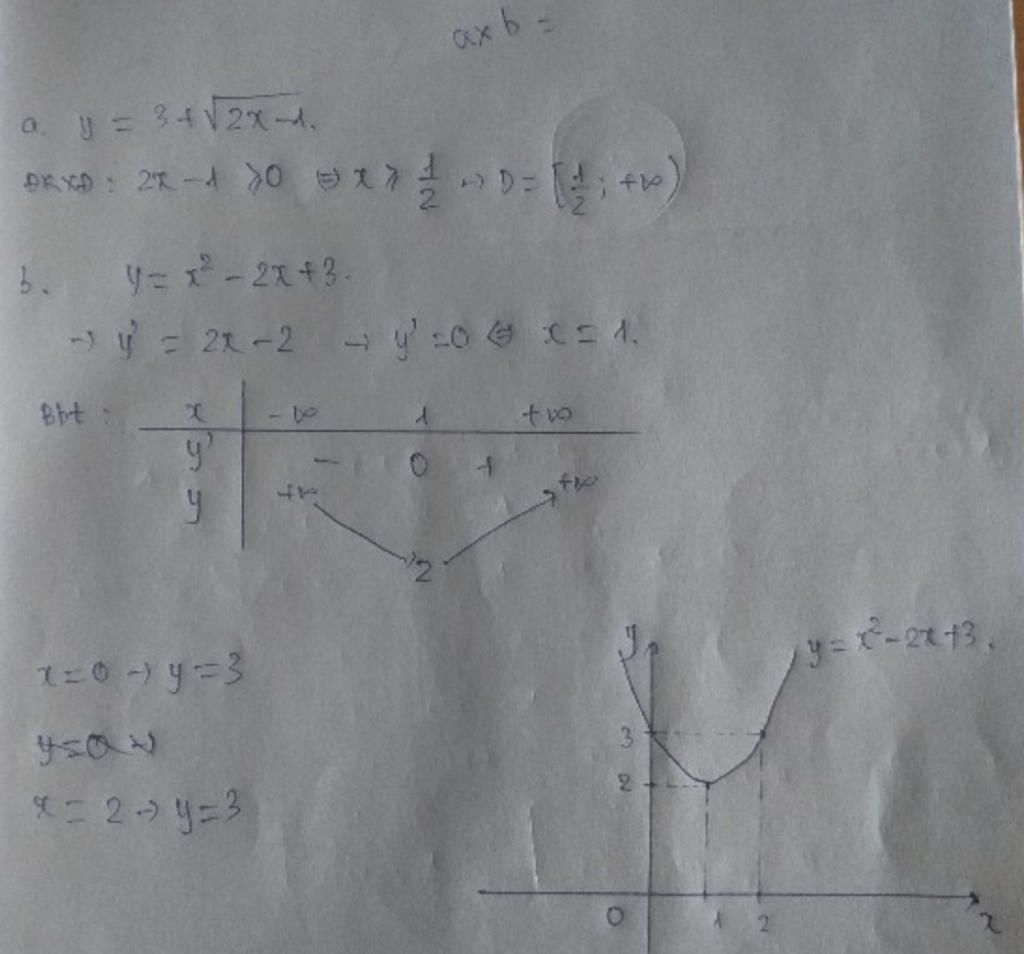 axb =
a. y = 3 + √2x-1.
ĐKXĐ : 2x - 1 ⩾ 0 ⇔ x ⩾ 1/2 → D = [1/2; +∞)
b. y = x² - 2x + 3.
→ y' = 2x - 2 → y' = 0 ⇔ x = 1.
Bbt : x -∞ 1 +∞
y' - 0 +
y +∞ 2 +∞
x = 0 → y = 3
y = 0 →
x = 2 → y = 3
y y = x² - 2x + 3.
3
2
0 1 2 x